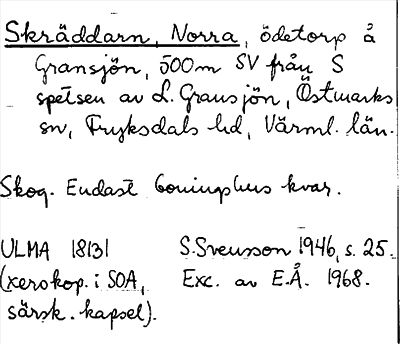 Skräddarn, Norra, ödetorp å
Gransjön, 500 m SV från S
spetsen av L. Gransjön, Östmarks
sn, Fryksdals hd, Värml. län.
Skog. Endast boningshus kvar.
ULMA 18131 S. Svensson 1946, s. 25.
(xerokop. i SOA, Exc. av E.Å. 1968.
särsk. kapsel).